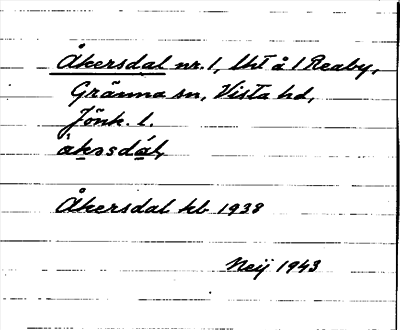 Åkersdal nr. 1, lht å 1 Reaby,
Gränna sn, Vista hd,
Jönk. l.
åkssdál,
Åkersdal kb 1938
Neij 1943